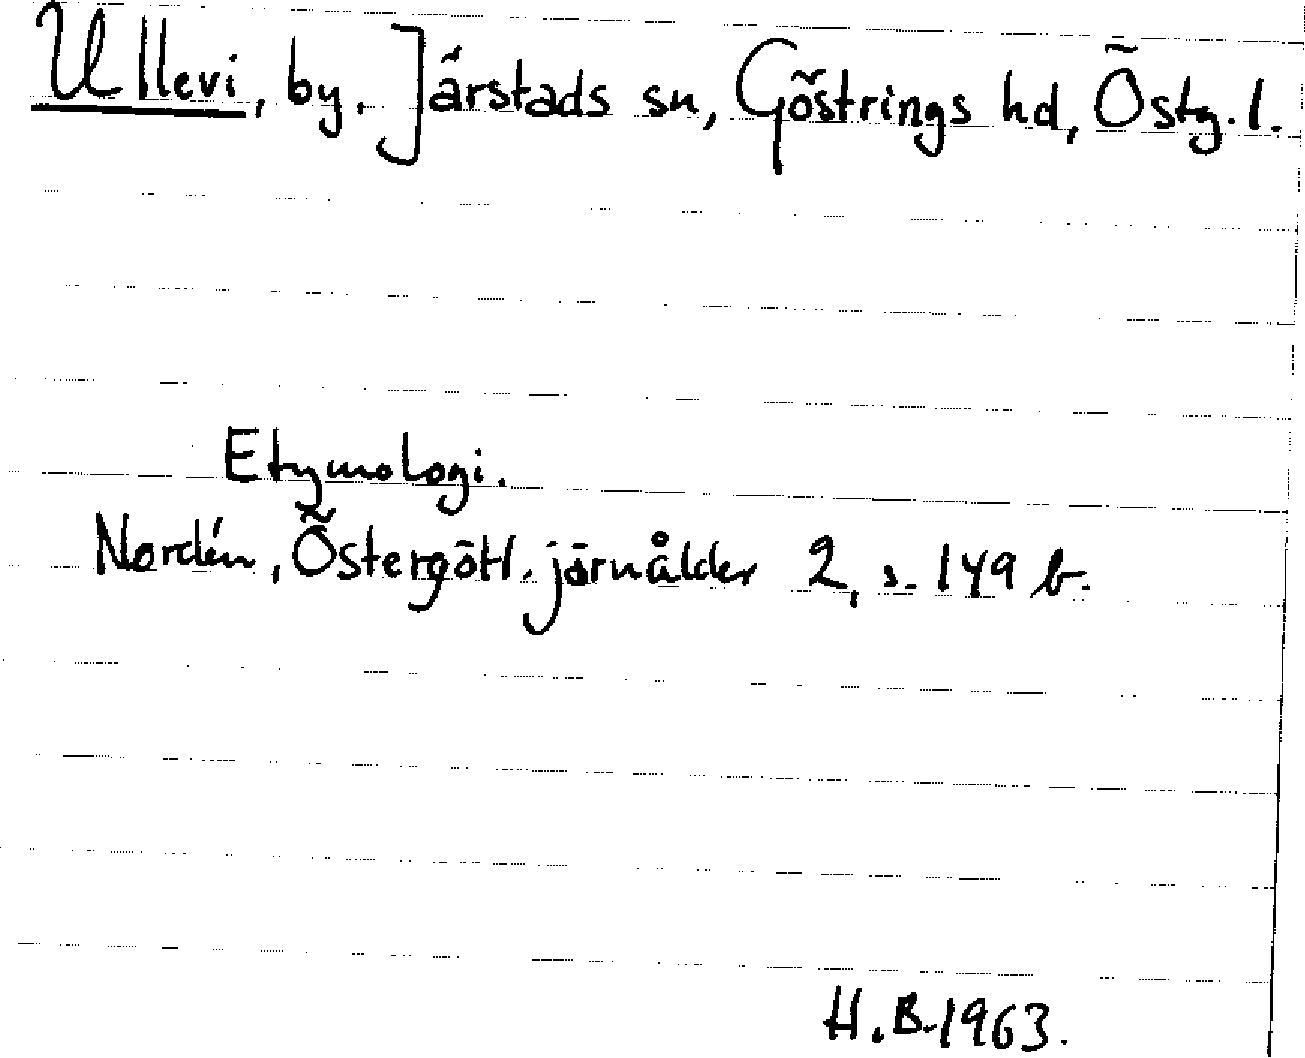 Ullevi, by. Järstads sn, Göstrings hd, Östg. l.
Etymologi.
Nordén, Östergötl. järnålder 2, s. 149 b.
H. B. 1963.